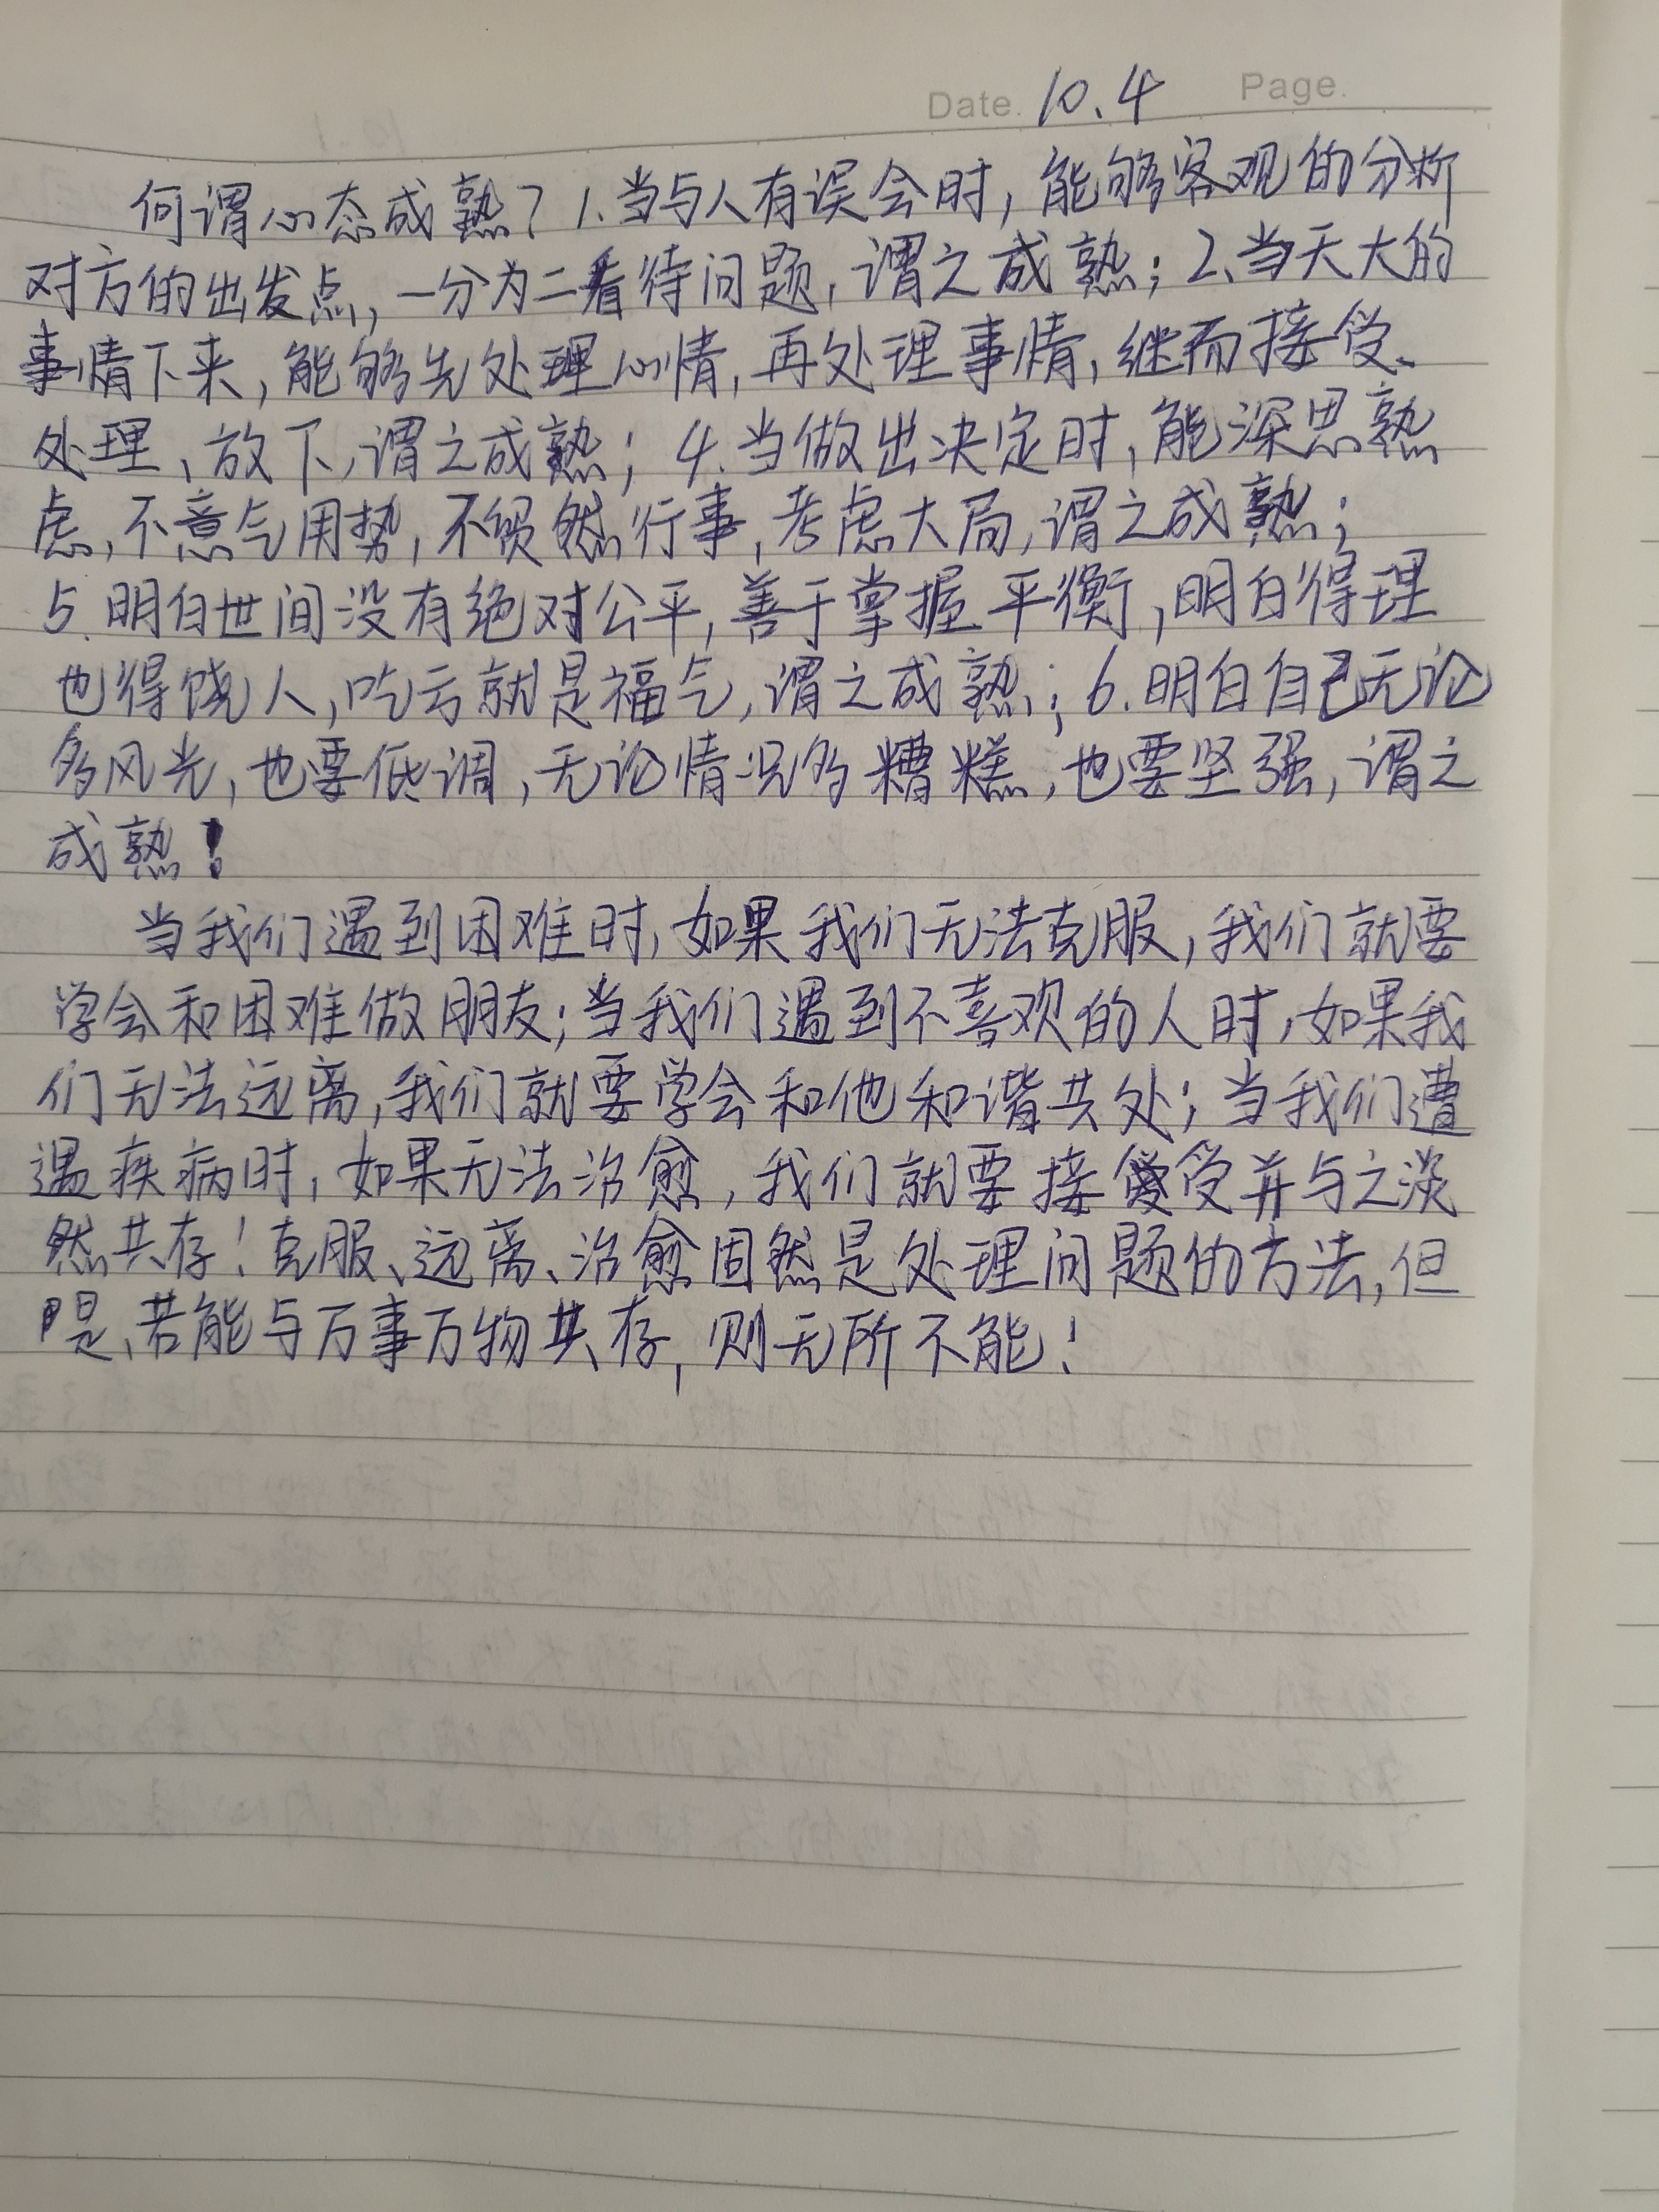 Date. 10.4 Page.
何谓心态成熟？1.当与人有误会时，能够客观的分析
对方的出发点，一分为二看待问题，谓之成熟；2、当天大的
事情下来，能够先处理心情，再处理事情，继而接受、
处理、放下，谓之成熟；4.当做出决定时，能深思熟
虑，不意气用势，不贸然行事，考虑大局，谓之成熟；
5.明白世间没有绝对公平，善于掌握平衡，明白得理
也得饶人，吃亏就是福气，谓之成熟；6.明白自己无论
多风光，也要低调，无论情况多糟糕，也要坚强，谓之
成熟！
当我们遇到困难时，如果我们无法克服，我们就要
学会和困难做朋友；当我们遇到不喜欢的人时，如果我
们无法远离，我们就要学会和他和谐共处；当我们遭
遇疾病时，如果无法治愈，我们就要接受并与之淡
然共存！克服、远离、治愈固然是处理问题的方法，但
是、若能与万事万物共存，则无所不能！